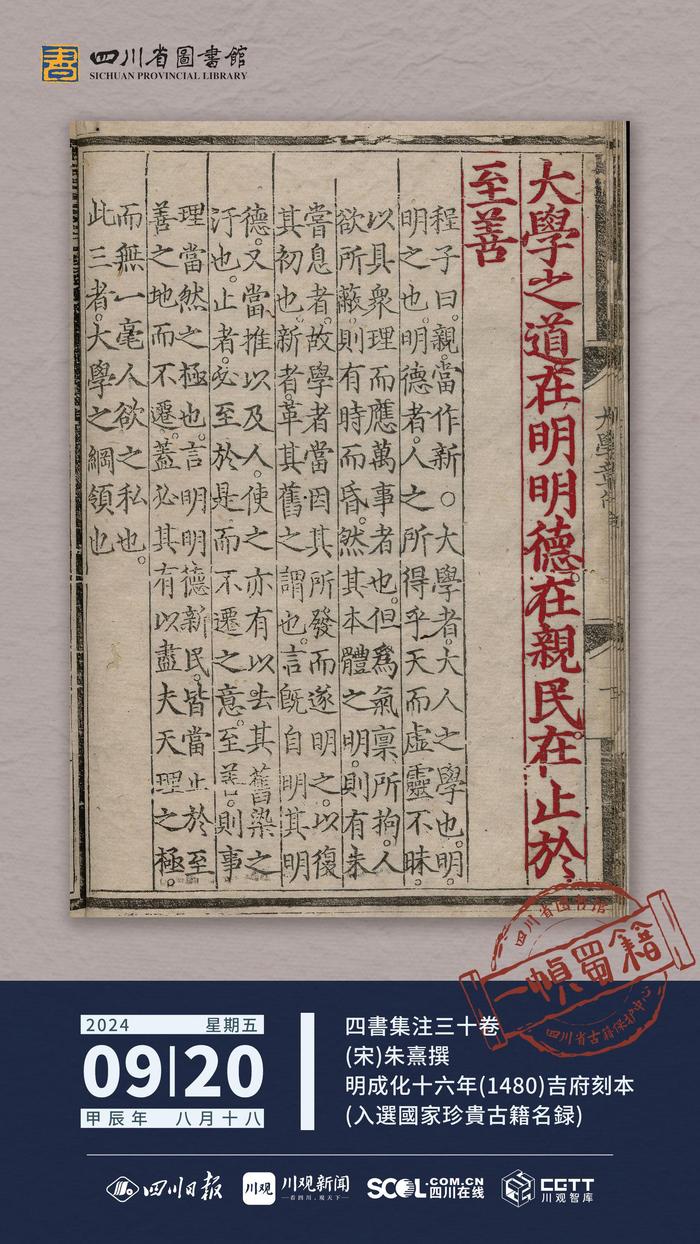 書
四川省圖書館
SICHUAN PROVINCIAL LIBRARY
大學之道在明明德。在親民。在止於
至善
程子曰。親當作新。○大學者。大人之學也。明。
明之也。明德者。人之所得乎天而虛靈不昧。
以具衆理而應萬事者也。但爲氣稟所拘。人
欲所蔽。則有時而昏。然其本體之明。則有未
嘗息者。故學者當因其所發而遂明之。以復
其初也。新者。革其舊之謂也。言旣自明其明
德。又當推以及人。使之亦有以去其舊染之
汙也。止者。必至於是而不遷之意。至善。則事
理當然之極也。言明明德新民。皆當止於至
善之地而不遷。蓋必其有以盡夫天理之極。
而無一毫人欲之私也。
此三者。大學之綱領也
四川省圖書館
一幀蜀籍
四川省古籍保护中心
2024 星期五
09|20
甲辰年 八月十八
四書集注三十卷
(宋)朱熹撰
明成化十六年(1480)吉府刻本
(入選國家珍貴古籍名録)
四川日报
川观
川观新闻
看四川,观天下
SCOL.COM.CN
四川在线
CGTT
川观智库